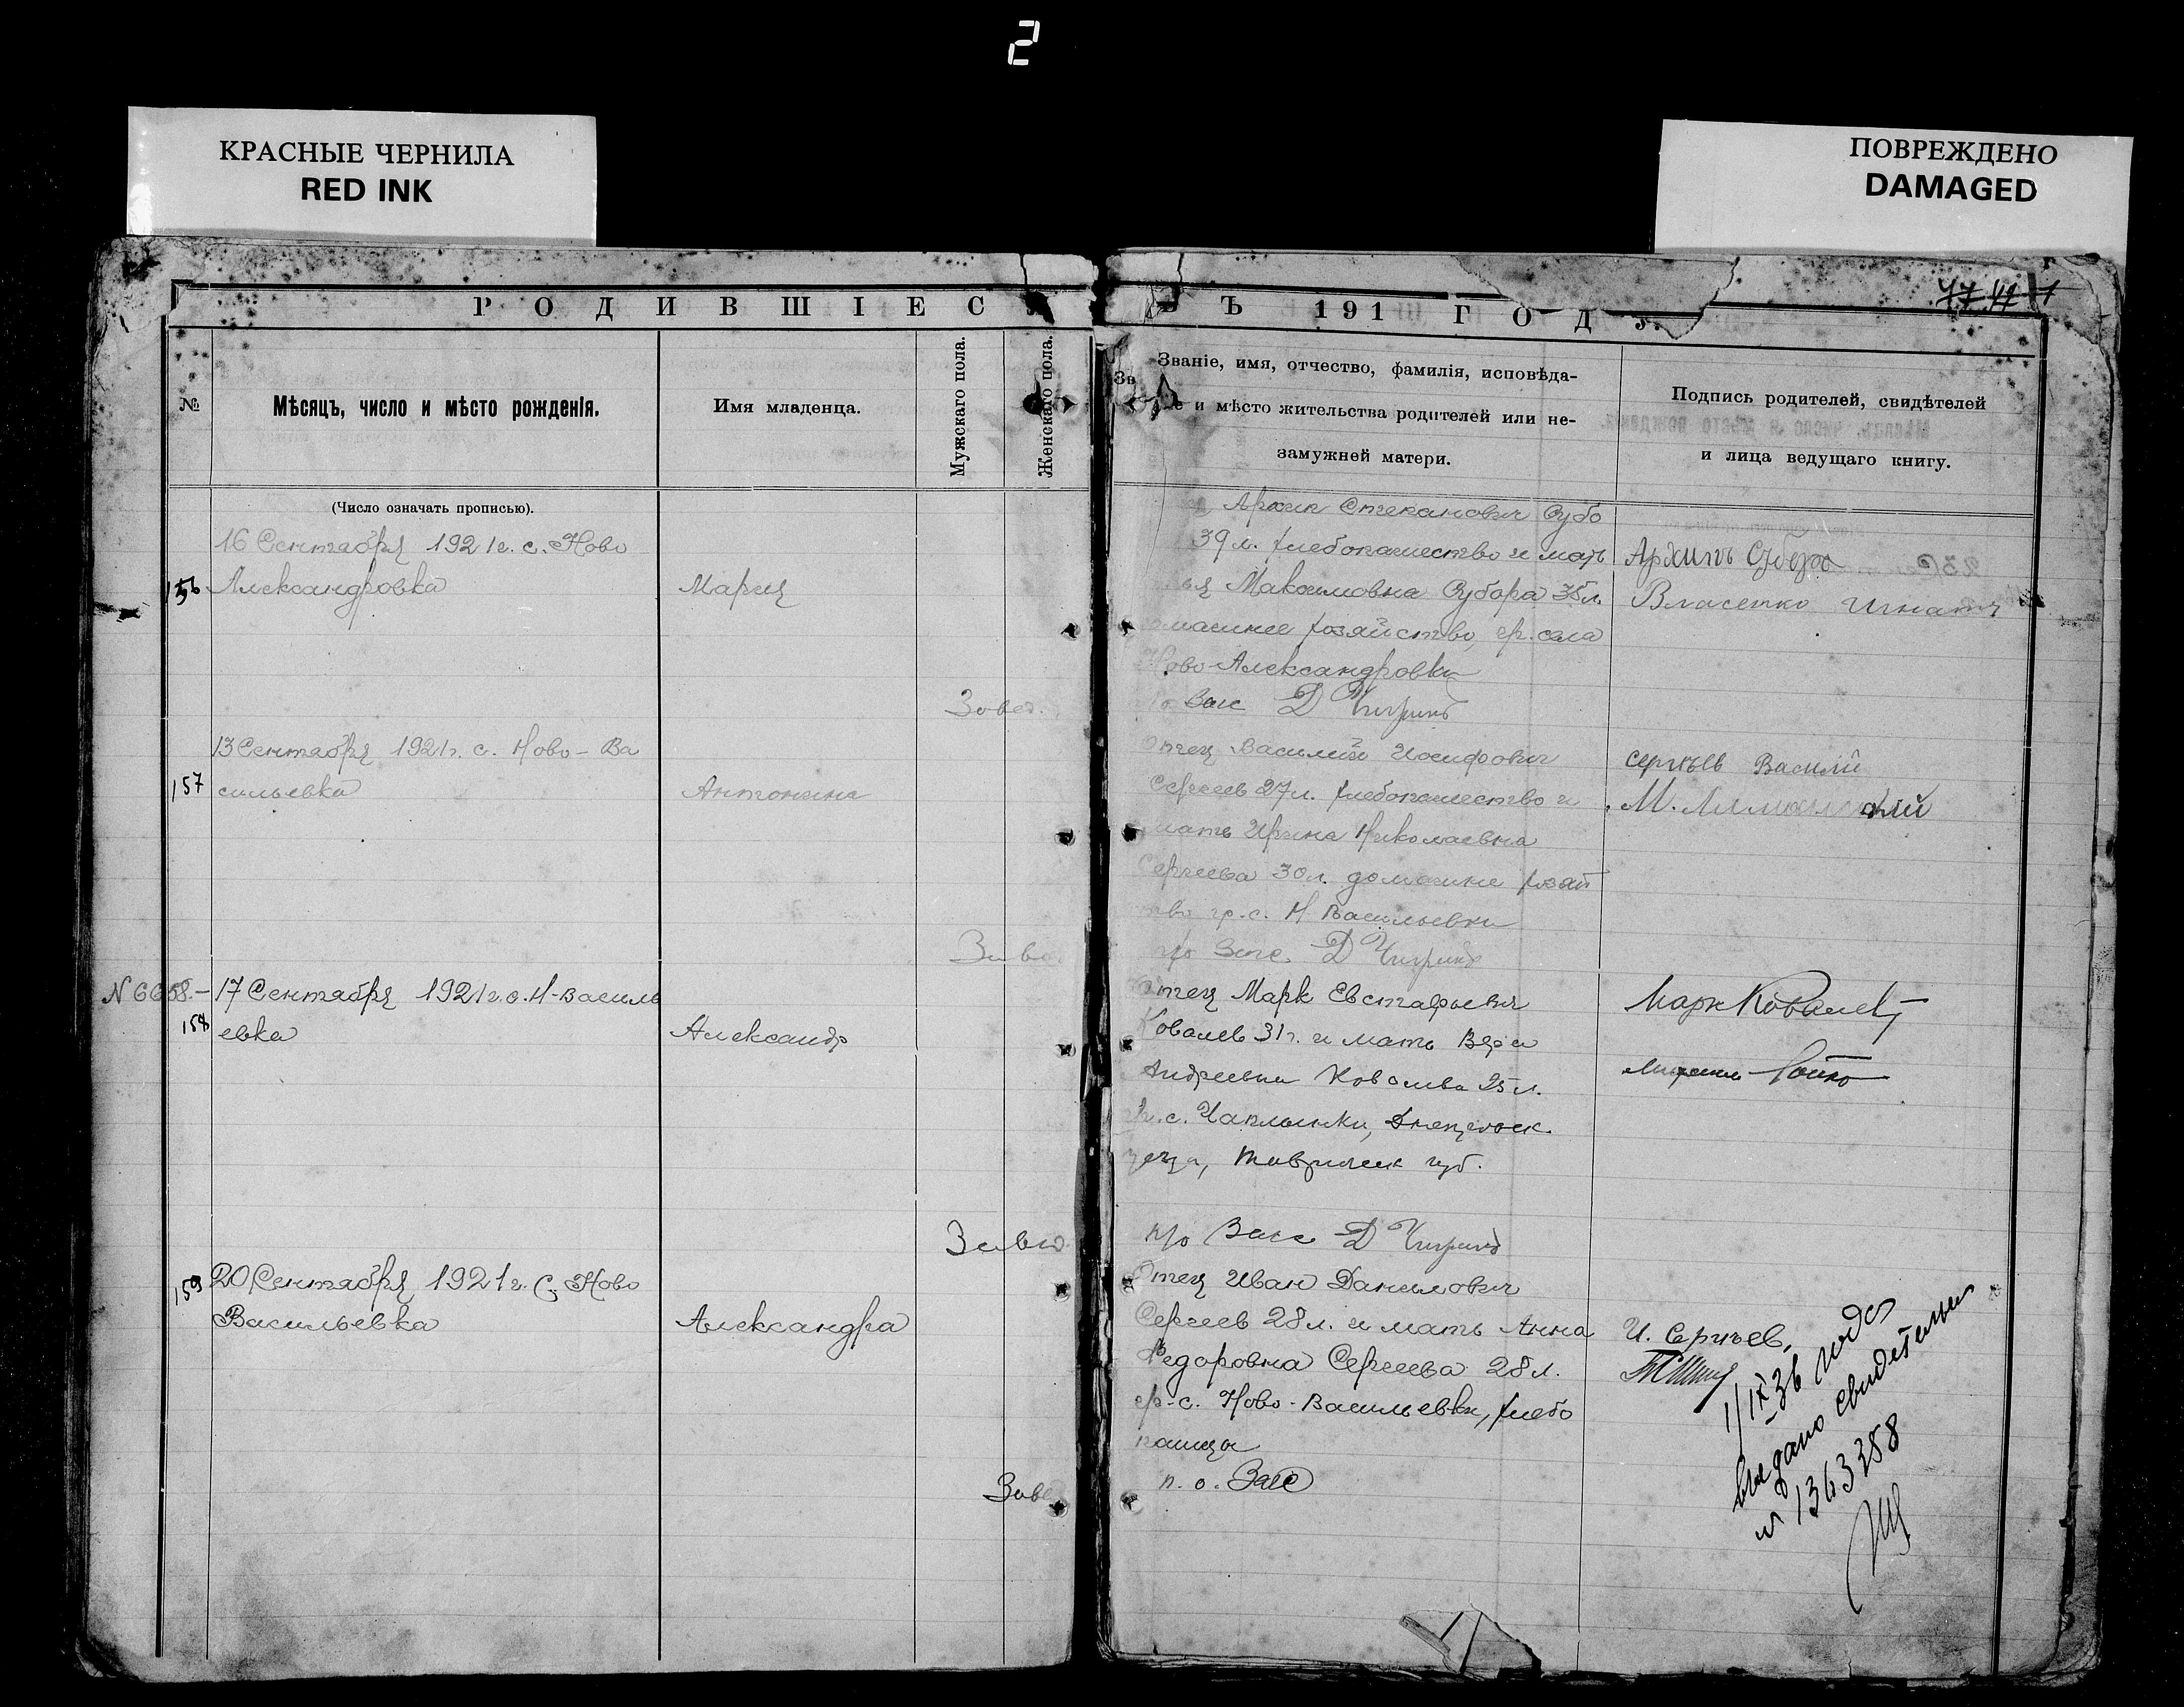 2
КРАСНЫЕ ЧЕРНИЛА
RED INK
ПОВРЕЖДЕНО
DAMAGED
РОДИВШІЕС
Ъ 191 ГОДУ.
№
Мѣсяцъ, число и мѣсто рожденія.
Имя младенца.
Мужскаго пола.
Женскаго пола.
Званіе, имя, отчество, фамилія, исповѣда-
е и мѣсто жительства родителей или не-
замужней матери.
Подпись родителей, свидѣтелей
и лица ведущаго книгу.
(Число означать прописью).
156
16 Сентября 1921 г. с. Ново
Александровка
Мария
Архип Степанович Субо
39 л. хлебопашество и мать
Максимовна Субора 38 л.
омашнее хозяйство, гр. села
Ново-Александровки
Завед.
Загс Д Чигрин
Архипъ
Власенко Игнат
157
13 Сентября 1921 г. с. Ново-Ва
сильевка
Антонина
Отец Василий Иосифович
Сергеев 27 л. хлебопашество и
мать Ирина Николаевна
Сергеева 30 л. домашне хозяй
тво гр. с. Н Васильевки
Заве
п/о Загс. Д Чигрин
Сергѣев Василій
М.
N 6658.-
158
17 Сентября 1921 г. с. Н-Василь
евка
Александр
Отец Марк Евстафьевич
Ковалев 31 г. и мать Вера
Андреевна Ковалева 25 л.
гр. с. Чаплынки, Днепровск.
уезда, Таврическ губ.
Завед.
п/о Загс Д Чигрин
Марк Ковалев
159
20 Сентября 1921 г. с. Ново
Васильевка
Александра
Отец Иван Данилович
Сергеев 28 л. и мать Анна
Федоровна Сергеева 28 л.
гр. с. Ново-Васильевки, хлебо
пашцы
Заве
п. о. Загс
И. Сергѣев,
1/IX 36 года
выдано свидетельст
№ 1363258